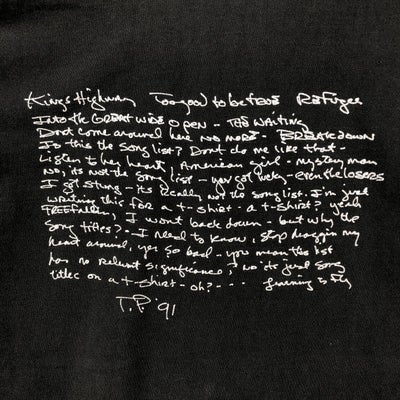 Kings Highway Too good to be true Refugee
Into the GREAT wide open - The WAITING
Dont come around here no more - BREAKDOWN
Is this the song list? Dont do me like that -
Listen to her heart, American girl - mystery man
No, its not the song list - you got lucky - even the losers
I got stung - its really not the song list. I'm just
writing this for a t-shirt - a t-shirt? yeah
FREEFALLEN, I wont back down - but why the
song titles? - I need to know, stop draggin my
heart around, yer so bad - you mean the list
has no relevant significance? no its just song
titles on a t-shirt - oh? - - - is fly
T.P. '91